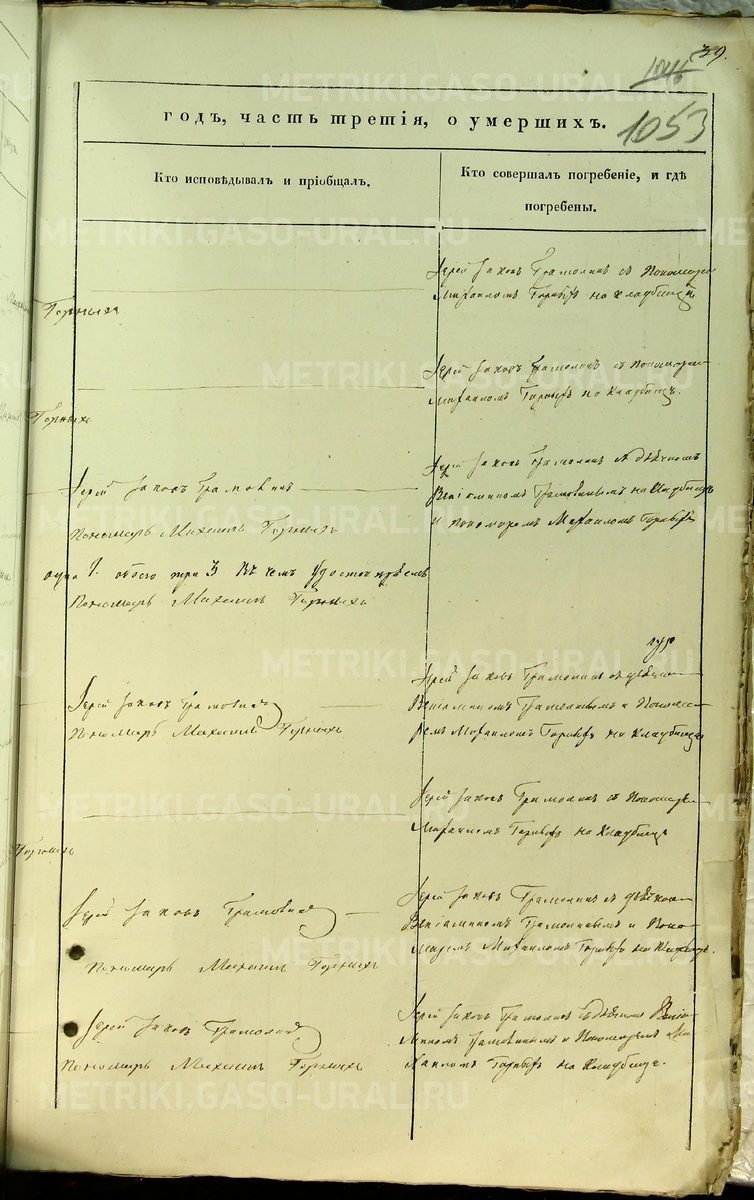 39.
1046
1053
годъ, часть третія, о умершихъ.
Кто исповѣдывалъ и пріобщалъ.
Кто совершалъ погребеніе, и гдѣ
погребены.
Іерей Іаковъ Грамолинъ съ Пономаре
Михаиломъ Горныхъ на Кладбищѣ
Горныхъ
Іерей Іаковъ Грамолинъ съ Пономаре
Михаиломъ Горныхъ на Кладбищѣ.
Горныхъ
Іерей Іаковъ Грамолинъ
Пономарь Михаилъ Горныхъ
Іерей Іаковъ Грамолинъ
Веніаминомъ Грамолинымъ на Кладбищѣ
и пономаремъ Михаиломъ Горныхъ
обоего три 3 Въ чемъ удостовѣряемъ
Пономарь Михаилъ Горныхъ
Іерей Іаковъ Грамолинъ
Пономарь Михаилъ Горныхъ
Іерей Іаковъ Грамолинъ съ
Веніаминомъ Грамолинымъ и Понома
ремъ Михаиломъ Горныхъ на Кладбищѣ
Іерей Іаковъ Грамолинъ съ Пономаре
Михаиломъ Горныхъ на Кладбищѣ
Горныхъ
Іерей Іаковъ Грамолинъ
Пономарь Михаилъ Горныхъ
Іерей Іаковъ Грамолинъ съ
Веніаминомъ Грамолинымъ и Поно
маремъ Михаиломъ Горныхъ на Кладбищѣ.
Іерей Іаковъ Грамолинъ
Пономарь Михаилъ Горныхъ
Іерей Іаковъ Грамолинъ съ Дьячкомъ Веніа
миномъ Грамолинымъ и Пономаремъ Ми
хаиломъ Горныхъ на Кладбищѣ.
METRIKI.GASO-URAL.RU